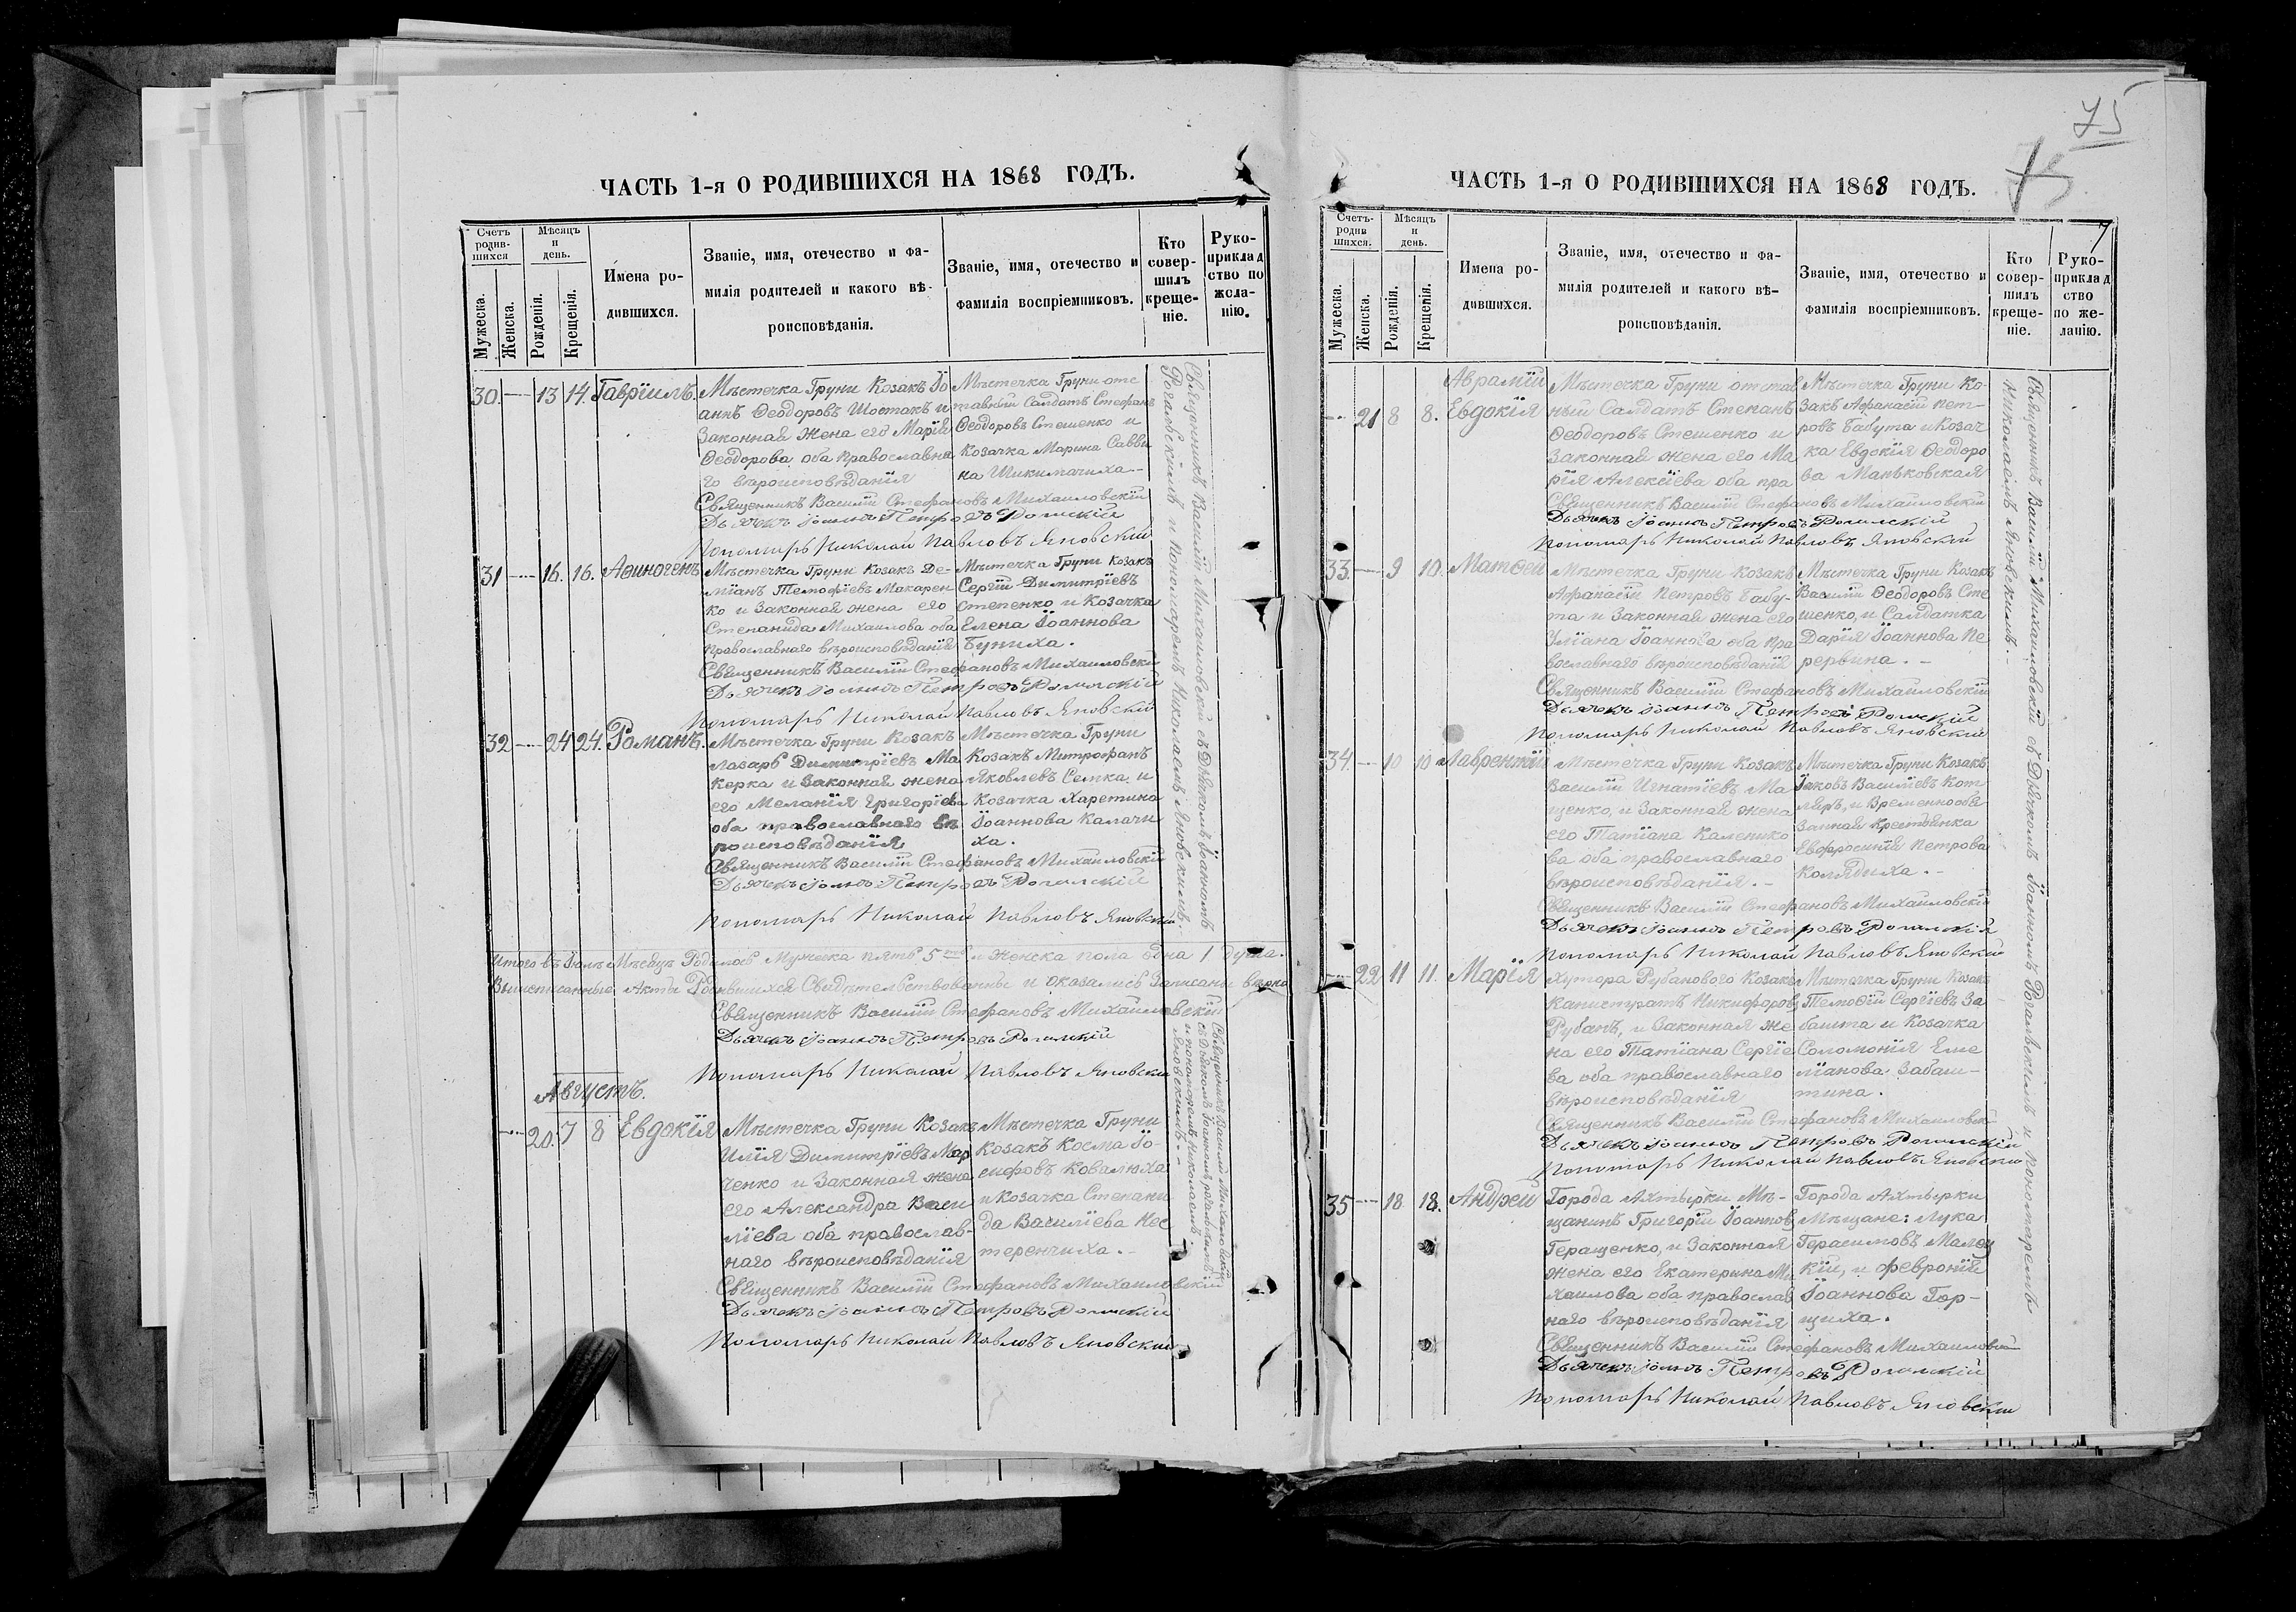 ЧАСТЬ 1-я О РОДИВШИХСЯ НА 1868 ГОДЪ.
Счетъ родив-шихся
Мѣсяцъ и день.
Мужеска.
Женска.
Рожденія.
Крещенія.
Имена ро-
дившихся.
Званіе, имя, отечество и фа-
милія родителей и какого вѣ-
роисповѣданія.
Званіе, имя, отечество и
фамилія воспріемниковъ.
Кто совер-шилъ креще-ніе.
Руко-приклад ство по жела-нію.
30. 13 14. Гавріилъ.
Мѣстечка Груни Козакъ Іо
аннъ Ѳеодоровъ Шостакъ и
Законная жена его Марія
Ѳеодорова оба православна
го вѣроисповѣданія
Мѣстечка Груни отс
тавный Салдатъ Стефанъ
Ѳеодоровъ Стешенко и
Козачка Марина Савви
на
Священникъ Василій Стефановъ Михаиловскій
Дьячекъ Іоаннъ Петровъ Рогальскій
Пономарь Николай Павловъ Яновскій
31 16. 16. Аѳиногенъ
Мѣстечка Груни Козакъ Де-
міанъ Тимофіевъ Макарен
ко и Законная жена его
Степанида Михаилова оба
православнаго вѣроисповѣданія
Мѣстечка Груни Козакъ
Сергій Димитріевъ
Степенко и Козачка
Елена Іоаннова
Буниха.
Священникъ Василій Стефановъ Михаиловскій
Дьячекъ Іоаннъ Петровъ Рогальскій
Пономарь Николай Павловъ Яновскій
32 24 24. Романъ.
Мѣстечка Груни Козакъ
Лазарь Димитріевъ Ма
керка и Законная жена
его Меланія Григоріева
оба православнаго вѣ
роисповѣданія
Мѣстечка Груни
Козакъ Митрофанъ
Яковлевъ Семка и
Козачка Харетина
Іоаннова Калачи
ха.
Священникъ Василій Стефановъ Михаиловскій
Дьячекъ Іоаннъ Петровъ Рогальскій
Пономарь Николай Павловъ Яновскій
Священникъ Василій Михаиловскій съ Дьячкомъ Іоанномъ
Рогальскимъ и Пономаремъ Николаемъ Яновскимъ.
Итого въ Іюлѣ Мѣсяцѣ Родилось Мужеска пять 5 и Женска пола Една 1 душа.
Вышеписанные Акты Родившихся Свидѣтельствованы и оказались Записаны вѣрно
Священникъ Василій Стефановъ Михаиловскій
Дьячекъ Іоаннъ Петровъ Рогальскій
Пономарь Николай Павловъ Яновскій
Августъ.
20. 7 8 Евдокія
Мѣстечка Груни Козакъ
Илія Димитріевъ Мар
ченко и Законная жена
его Александра Васи
ліева оба православ-
наго вѣроисповѣданія
Мѣстечка Груни
Козакъ Косма Іо-
сифовъ Ковалюха
и Козачка Степани
да Василіева Нес
теренчиха.
Священникъ Василій Стефановъ Михаиловскій
Дьячекъ Іоаннъ Петровъ Рогальскій
Пономарь Николай Павловъ Яновскій
Священникъ Василій Михаиловскій
съ Дьячкомъ Іоанномъ Рогальскимъ
и пономаремъ Николаемъ
Яновскимъ.
75
75
7
ЧАСТЬ 1-я О РОДИВШИХСЯ НА 1868 ГОДЪ.
Счетъ-родив шихся.
Мѣсяцъ и день.
Мужеска.
Женска.
Рожденія.
Крещенія.
Имена ро-
дившихся.
Званіе, имя, отечество и фа-
милія родителей и какого вѣ-
роисповѣданія.
Званіе, имя, отечество и
фамилія воспріемниковъ.
Кто совер-шилъ креще-ніе.
Руко-приклад ство по же-ланію.
21 8 8. Аврамій
Евдокія
Мѣстечка Груни отстав
ный Салдатъ Степанъ
Ѳеодоровъ Стешенко и
Законная жена его Ма
рія Алексіева оба пра
Мѣстечка Груни Ко-
закъ Афанасій Пет-
ровъ Бабута и Козач
ка Евдокія Ѳеодоро
ва Маньковская
Священникъ Василій Стефановъ Михаиловскій
Дьячекъ Іоаннъ Петровъ Рогальскій
Пономарь Николай Павловъ Яновскій
33. 9 10. Матѳей
Мѣстечка Груни Козакъ
Афанасій Петровъ Бабу-
та и Законная жена его
Уліана Іоаннова оба пра
вославнаго вѣроисповѣданія
Мѣстечка Груни Козакъ
Василій Ѳеодоровъ Сте
шенко, и Салдатка
Дарія Іоаннова Пе
рервина.
Священникъ Василій Стефановъ Михаиловскій
Дьячекъ Іоаннъ Петровъ Рогальскій
Пономарь Николай Павловъ Яновскій
34. 10 10 Лаврентій
Мѣстечка Груни Козакъ
Василій Игнатіевъ Ма
щенко, и Законная жена
его Татіана Каленико
ва оба православнаго
вѣроисповѣданія.
Мѣстечка Груни Козакъ
Іаковъ Василіевъ Кот
ляръ, и Временнообя
занная Крестьянка
Евфросинія Петрова
Колядиха.
Священникъ Василій Стефановъ Михаиловскій
Дьячекъ Іоаннъ Петровъ Рогальскій
Пономарь Николай Павловъ Яновскій
22 11 11. Марія
Хутора Рубанового Козакъ
Калистратъ Никифоровъ
Рубанъ, и Законная же
на его Татіана Сергіе
ва оба православнаго
вѣроисповѣданія
Мѣстечка Груни Козакъ
Тимоѳій Сергіевъ За
башта и Козачка
Соломонія Еме
ліанова Забаш-
тина.
Священникъ Василій Стефановъ Михаиловскій
Дьячекъ Іоаннъ Петровъ Рогальскій
Пономарь Николай Павловъ Яновскій
35 18 18. Андрей
Города Ахтырки Мѣ-
щанинъ Григорій Іоаннов
Геращенко, и Законная
жена его Екатерина Ми
хаилова оба православ
наго вѣроисповѣданія
Города Ахтырки
Мѣщане: Лука
Герасимовъ Малец
кій, и Февронія
Іоаннова Гор-
щиха.
Священникъ Василій Стефановъ Михаиловскій
Дьячекъ Іоаннъ Петровъ Рогальскій
Пономарь Николай Павловъ Яновскій
Священникъ Василій Михаиловскій съ Дьячкомъ Іоанномъ Рогальскимъ и пономаремъ
Николаемъ Яновскимъ.